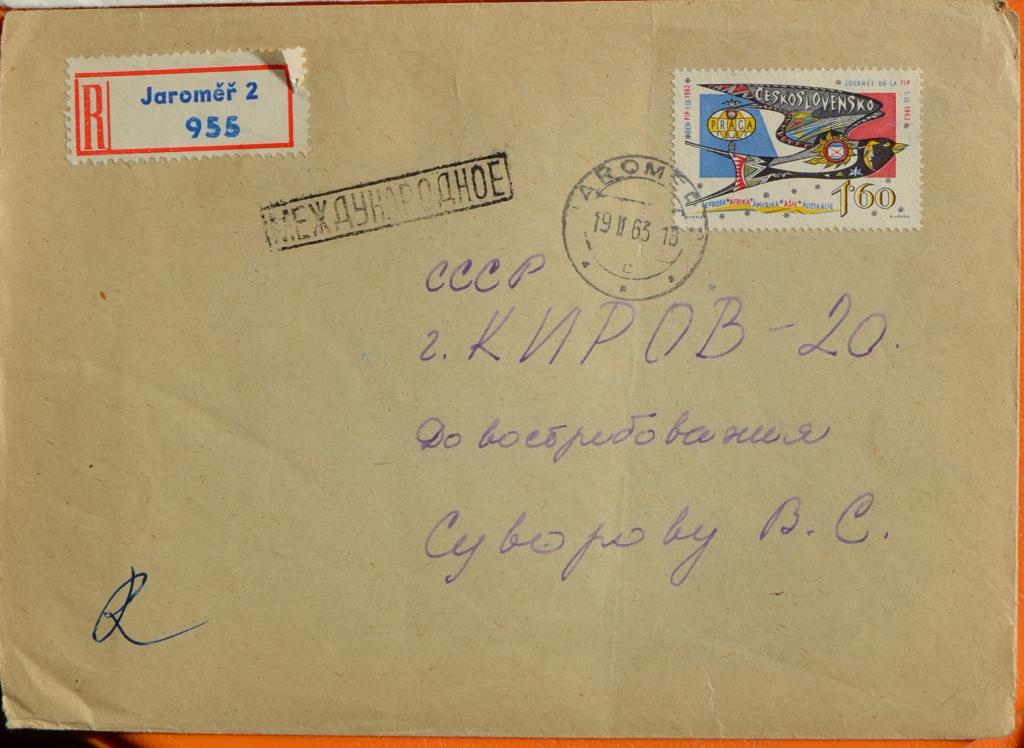 R
Jaroměř 2
955
МЕЖДУНАРОДНОЕ
ČESKOSLOVENSKO
JOURNÉE DE LA FIP
1·IX·1962
DEN FIP 1·IX·1962
PRAGA
EVROPA*AFRIKA*AMERIKA*ASIE*AUSTRALIE
1·60
JAROMĚŘ 2
19 II 63 13
C
СССР
г. КИРОВ-20.
До востребования
Суворову В. С.